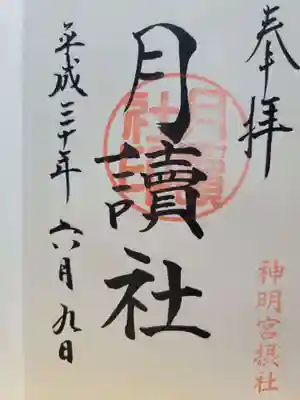 奉拝
月讀社
平成三十年六月九日
神明宮摂社
月讀社